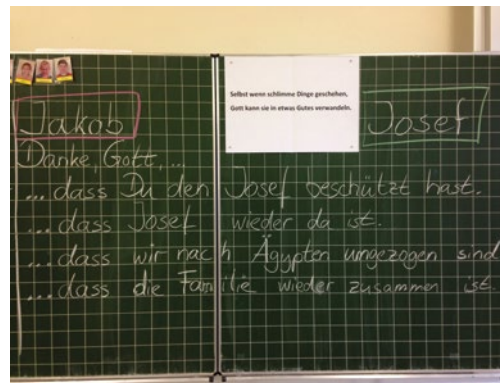 Selbst wenn schlimme Dinge geschehen,
Gott kann sie in etwas Gutes verwandeln.
Jakob
Josef
Danke, Gott, ...
... dass Du den Josef beschützt hast.
... dass Josef wieder da ist.
... dass wir nach Ägypten umgezogen sind
... dass die Familie wieder zusammen ist.